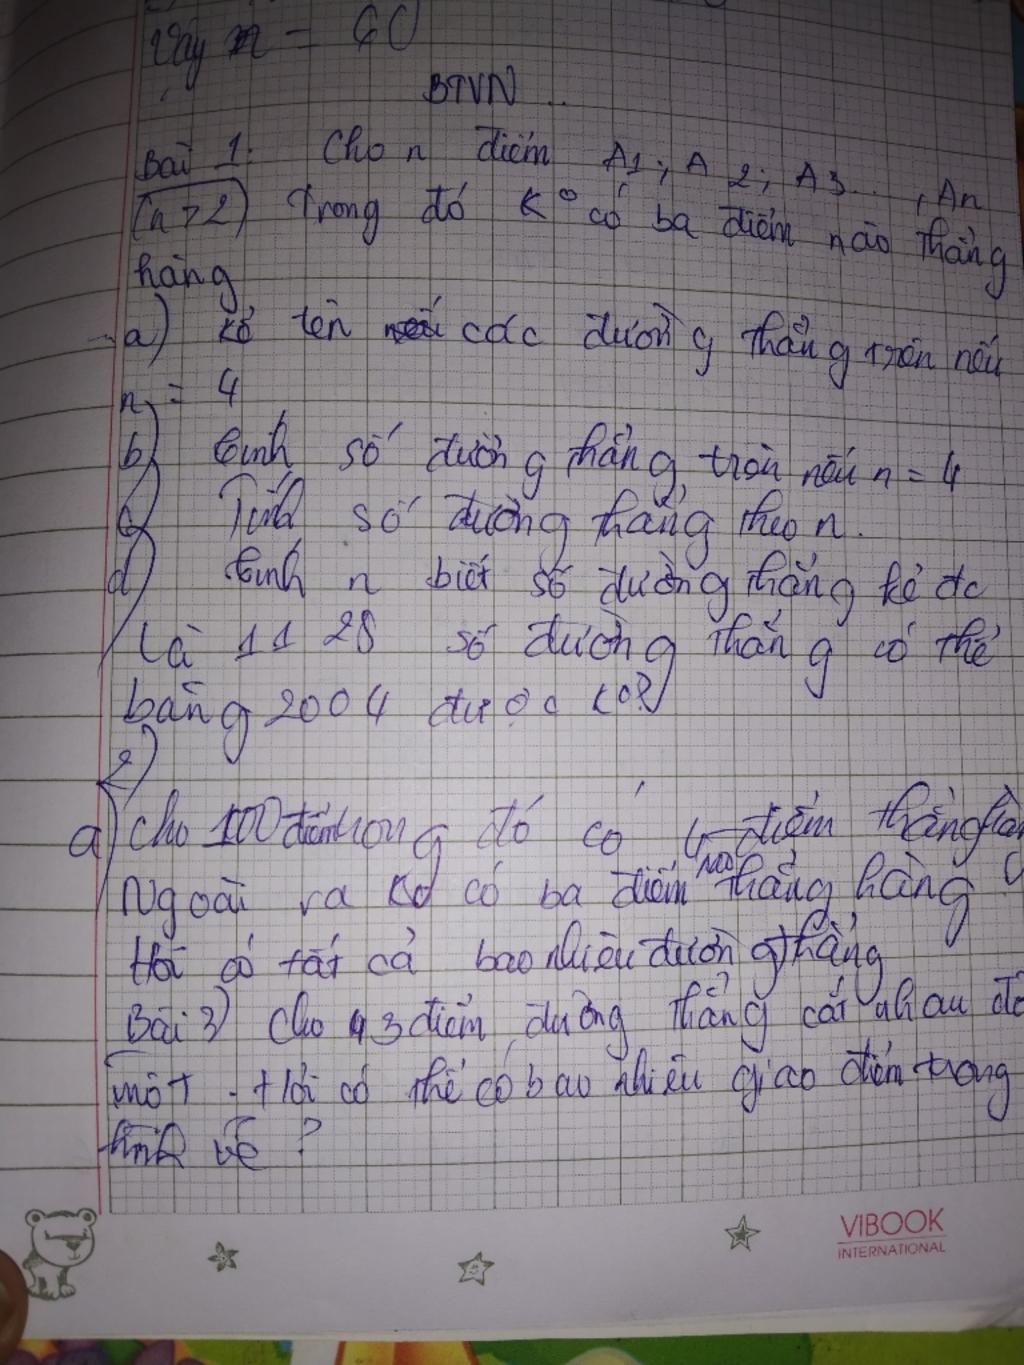 Vậy n = 60
BTVN
Bài 1: Cho n điểm A1; A2; A3..., An
(n > 2) Trong đó Ko có ba điểm nào thẳng
hàng
a) kể tên các đường thẳng trên nếu
n = 4
b) tính số đường thẳng trên nếu n = 4
c) Tính số đường thẳng theo n.
d) tính n biết số đường thẳng kẻ đc
là 1128 số đường thẳng có thể
bằng 2004 được ko?
2)
a) Cho 100 điểm trong đó có 4 điểm thẳng hàn
Ngoài ra Ko có ba điểm nào thẳng hàng
Hỏi có tất cả bao nhiêu đường thẳng
Bài 3) Cho 3 điểm đường thẳng cắt nhau đô
một. Hỏi có thể có bao nhiêu giao điểm trong
hình vẽ?
VIBOOK
INTERNATIONAL